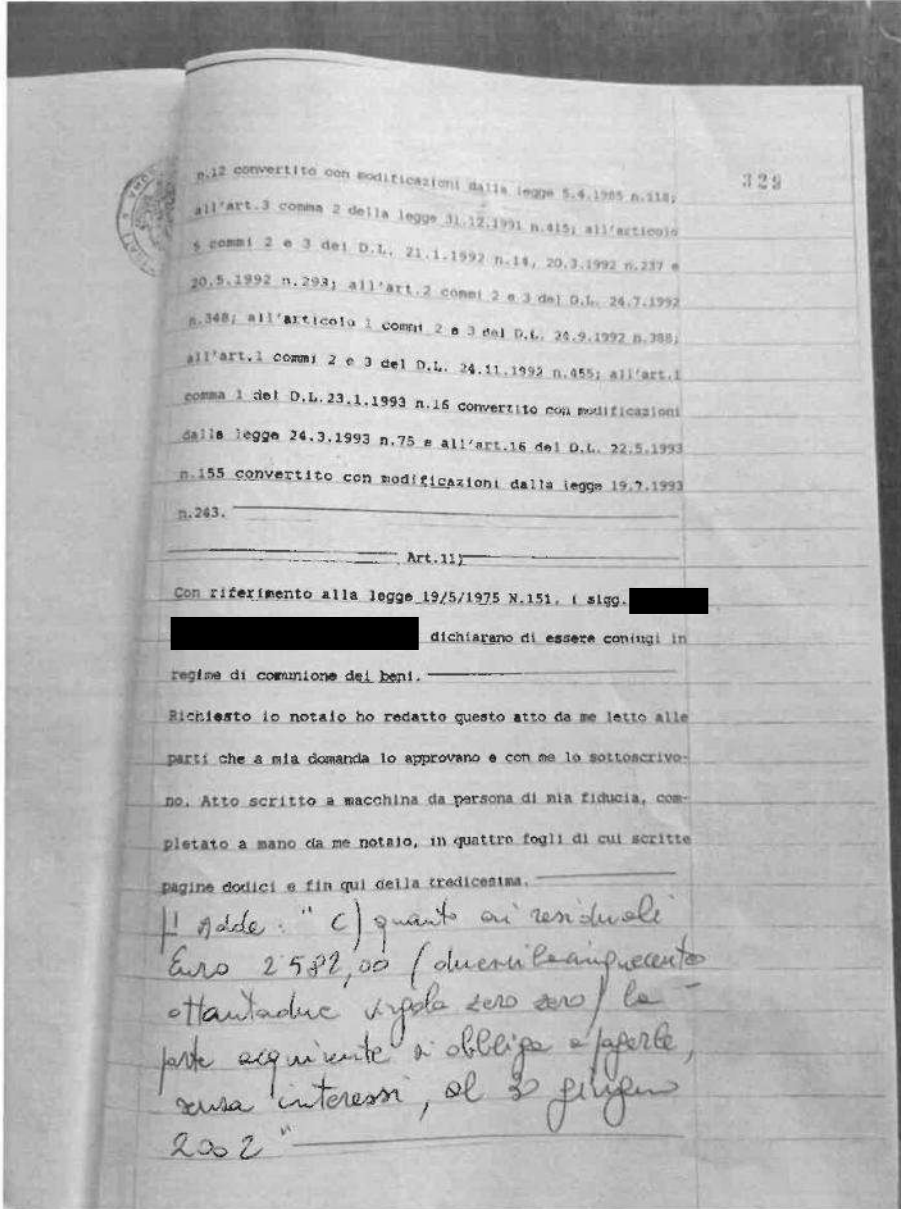 329
n.12 convertito con modificazioni dalla legge 5.4.1985 n.118;
all'art.3 comma 2 della legge 31.12.1991 n.415; all'articolo
5 commi 2 e 3 dei D.L. 21.1.1992 n.14, 20.3.1992 n.237 e
20.5.1992 n.293; all'art.2 commi 2 e 3 del D.L. 24.7.1992
n.348; all'articolo 1 commi 2 e 3 del D.L. 24.9.1992 n.388;
all'art.1 commi 2 e 3 del D.L. 24.11.1992 n.455; all'art.1
comma 1 del D.L.23.1.1993 n.16 convertito con modificazioni
dalla legge 24.3.1993 n.75 e all'art.16 del D.L. 22.5.1993
n.155 convertito con modificazioni dalla legge 19.7.1993
n.243.
Art.11)
Con riferimento alla legge 19/5/1975 N.151, i sigg.
dichiarano di essere coniugi in
regime di comunione dei beni.
Richiesto io notaio ho redatto questo atto da me letto alle
parti che a mia domanda lo approvano e con me lo sottoscrivo-
no. Atto scritto a macchina da persona di mia fiducia, com-
pletato a mano da me notaio, in quattro fogli di cui scritte
pagine dodici e fin qui della tredicesima.
Adde: "C) quanto ai residuali
Euro 2582,00 (duemilacinquecento
ottantadue virgola zero zero) la
parte acquirente si obbliga a pagarle,
senza interessi, al 30 giugno
2002"